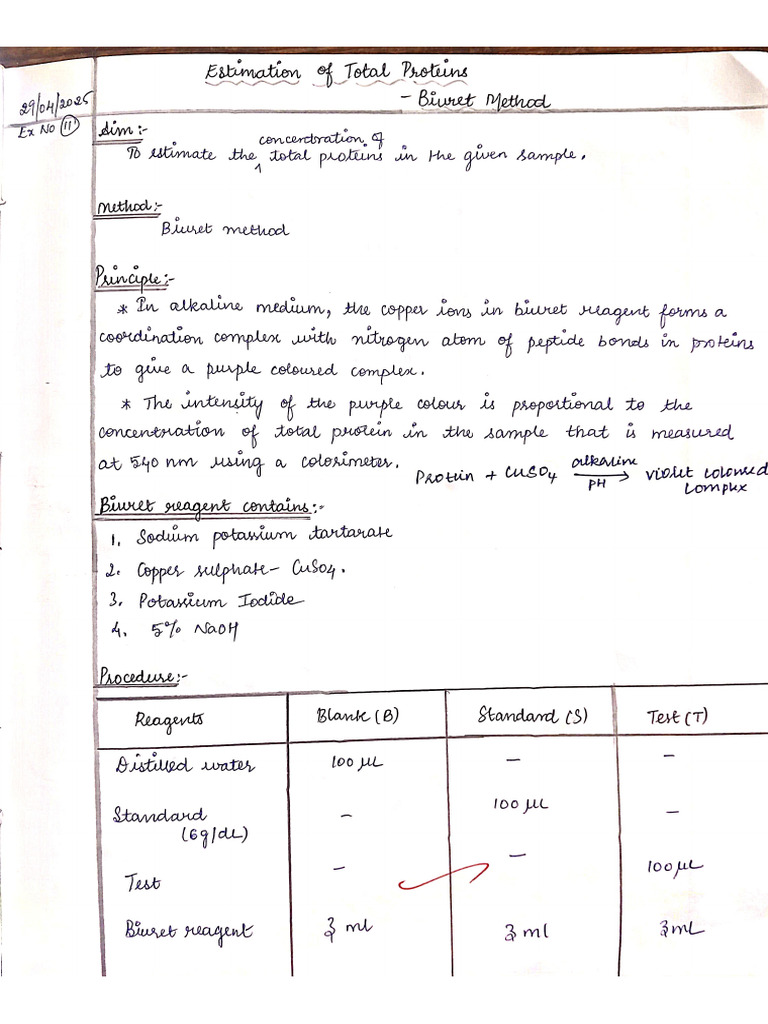 Estimation of Total Proteins
- Biuret Method
29/04/2025
Ex No 11
Aim:-
concentration of
To estimate the ^ total proteins in the given sample.
Method:-
Biuret method
Principle:-
* In alkaline medium, the copper ions in biuret reagent forms a
coordination complex with nitrogen atom of peptide bonds in proteins
to give a purple coloured complex.
* The intensity of the purple colour is proportional to the
concentration of total protein in the sample that is measured
at 540 nm using a colorimeter.
Protein + CuSO4 alkaline PH → violet coloured complex
Biuret reagent contains:-
1. Sodium potassium tartarate
2. Copper sulphate - CuSO4.
3. Potassium Iodide
4. 5% NaOH
Procedure:-
Reagents Blank (B) Standard (S) Test (T)
Distilled water 100 μL - -
Standard (6g/dL) - 100 μL -
Test - - 100 μL
Biuret reagent 3 ml 3 ml 3 mL